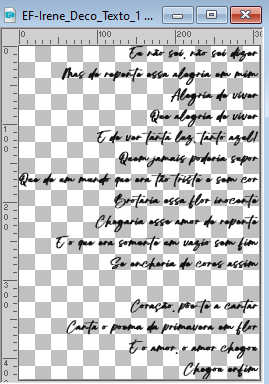 EF-Irene_Deco_Texto_1 ...
0 100 200 30
0
100
200
300
40
Eu não sei, não sei dizer
Mas de repente essa alegria em mim
Alegria de viver
Que alegria de viver
E de ver tanta luz, tanto azul!
Quem jamais poderia supor
Que de um mundo que era tão triste e sem cor
Brotaria essa flor inocente
Chegaria esse amor de repente
E o que era somente um vazio sem fim
Se encheria de cores assim
Coração, põe-te a cantar
Canta o poema da primavera em flor
É o amor, o amor chegou
Chegou enfim